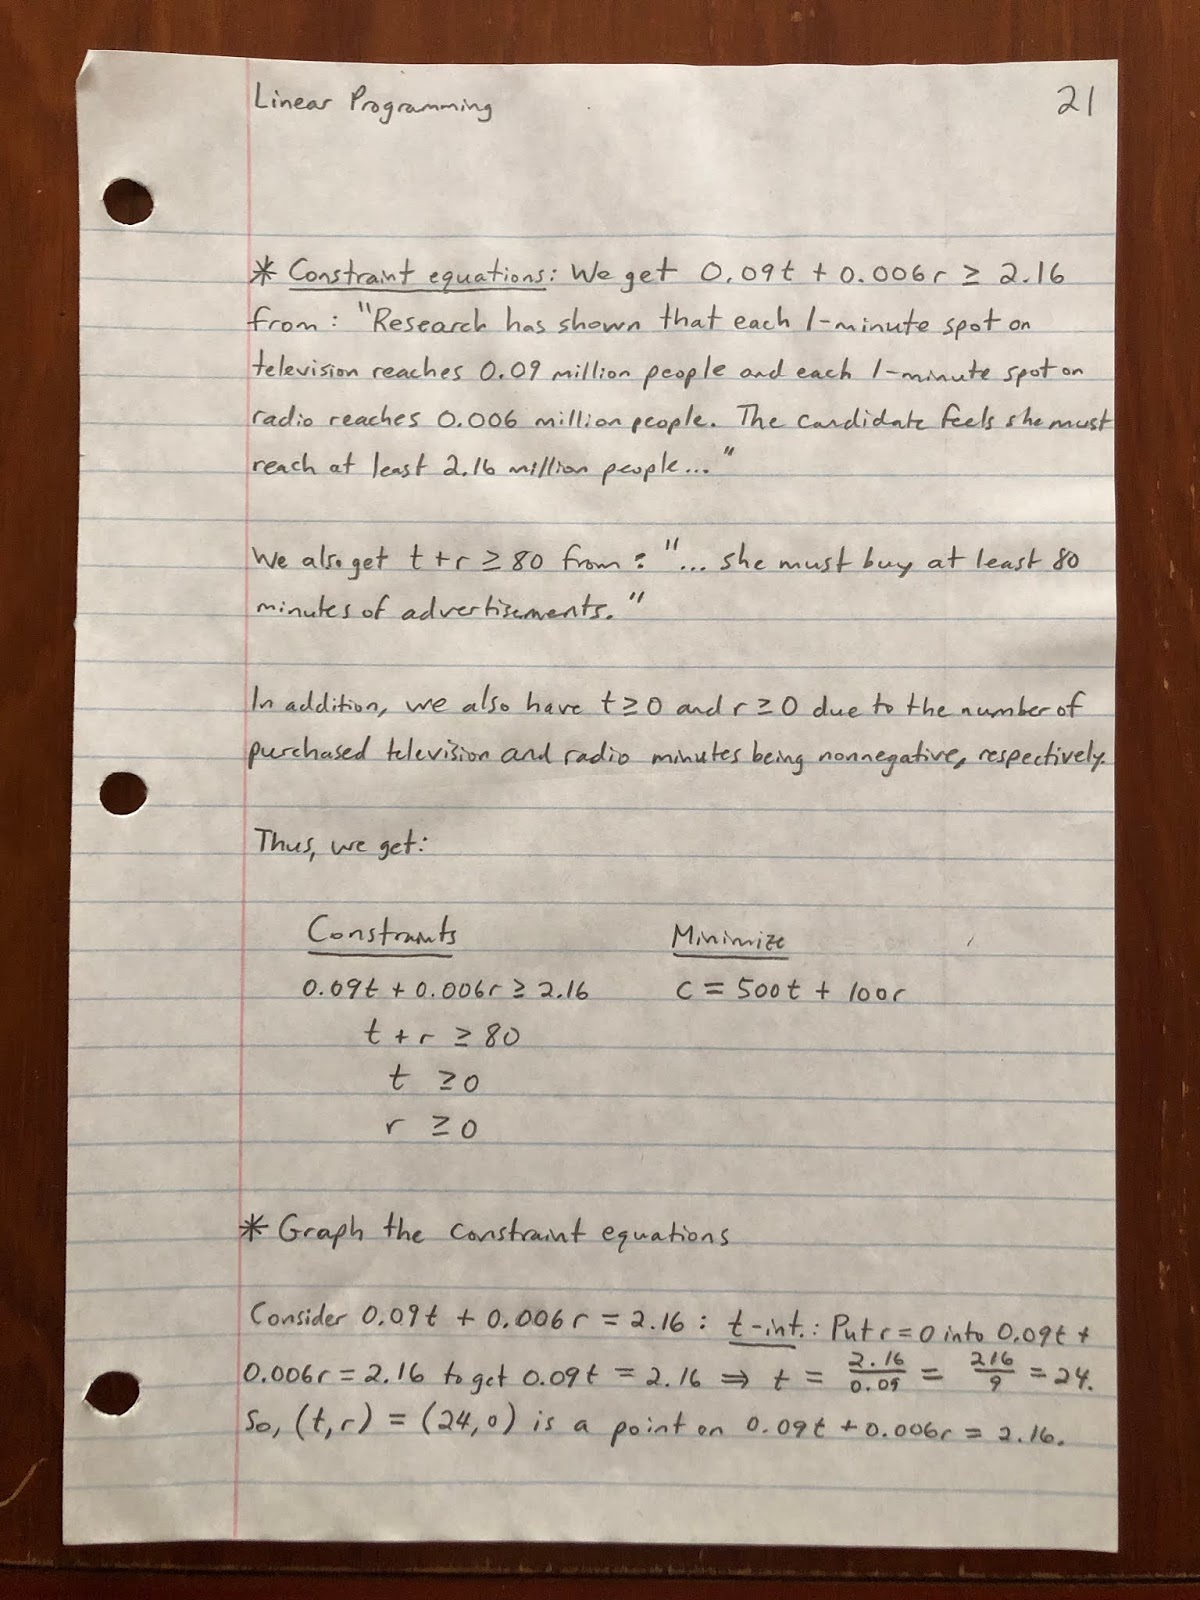 Linear Programming 21
* Constraint equations: We get 0.09t + 0.006r ≥ 2.16
from: "Research has shown that each 1-minute spot on
television reaches 0.09 million people and each 1-minute spot on
radio reaches 0.006 million people. The candidate feels she must
reach at least 2.16 million people..."
We also get t + r ≥ 80 from: "... she must buy at least 80
minutes of advertisements."
In addition, we also have t ≥ 0 and r ≥ 0 due to the number of
purchased television and radio minutes being nonnegative, respectively.
Thus, we get:
Constraints Minimize
0.09t + 0.006r ≥ 2.16 C = 500t + 100r
t + r ≥ 80
t ≥ 0
r ≥ 0
* Graph the constraint equations
Consider 0.09t + 0.006r = 2.16: t-int.: Put r = 0 into 0.09t +
0.006r = 2.16 to get 0.09t = 2.16 ⇒ t = 2.16/0.09 = 216/9 = 24.
So, (t,r) = (24,0) is a point on 0.09t + 0.006r = 2.16.